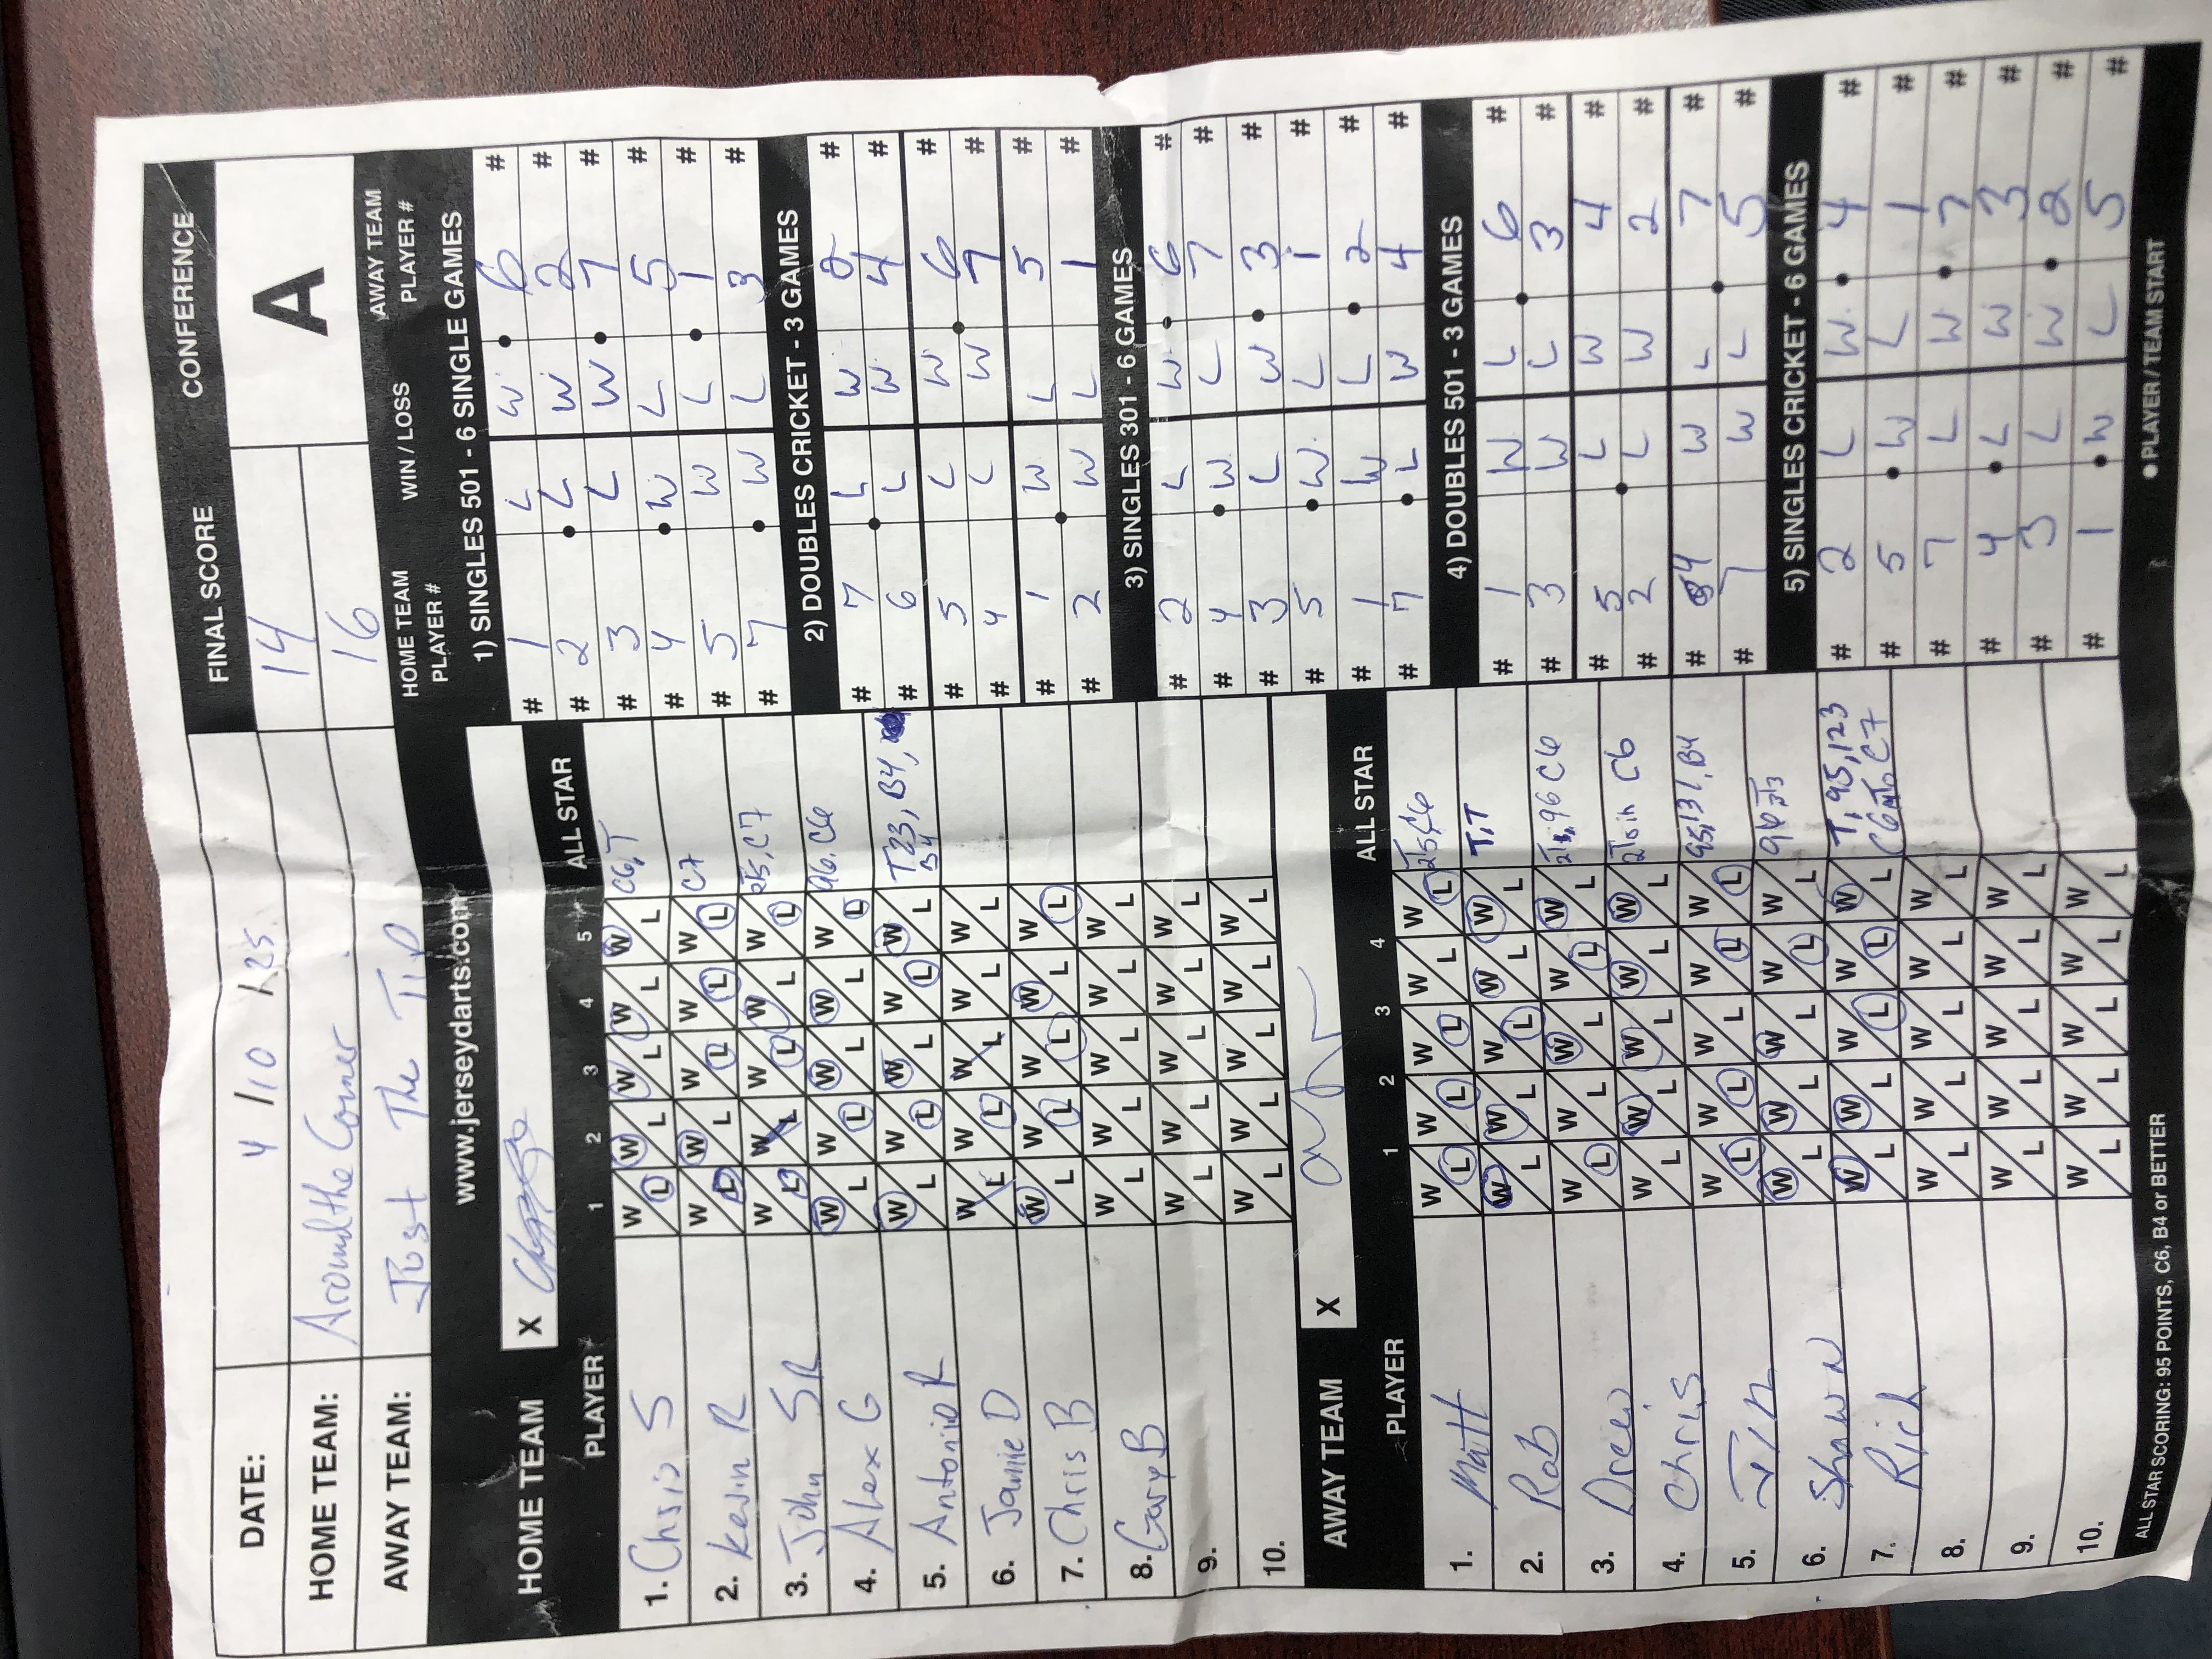 DATE: 4/10/25
FINAL SCORE CONFERENCE
HOME TEAM: Around the Corner 14 A
AWAY TEAM: Just The Tip 16
www.jerseydarts.com
HOME TEAM X
PLAYER 1 2 3 4 5 ALL STAR
1. Chris S W L W L W L W L W L C6, T
2. Kevin R W L W L W L W L W L C7
3. John SR W L W L W L W L W L C7
4. Alex G W L W L W L W L W L 96, C6
5. Antonio R W L W L W L W L W L T23, B4, B4
6. Janie D W L W L W L W L W L
7. Chris B W L W L W L W L W L
8. Gary B W L W L W L W L W L
9. W L W L W L W L W L
10. W L W L W L W L W L
AWAY TEAM X
PLAYER 1 2 3 4 ALL STAR
1. Matt W L W L W L W L W L C6
2. Rob W L W L W L W L W L T, T
3. Drew W L W L W L W L W L 96 C6
4. Chris W L W L W L W L W L C6
5. W L W L W L W L W L 95, 131, B4
6. Shawn W L W L W L W L W L
7. Rich W L W L W L W L W L T, 95, 123 C6 C7
8. W L W L W L W L W L
9. W L W L W L W L W L
10. W L W L W L W L W L
ALL STAR SCORING: 95 POINTS, C6, B4 or BETTER
HOME TEAM PLAYER # WIN / LOSS AWAY TEAM PLAYER #
1) SINGLES 501 - 6 SINGLE GAMES
# 1 L W 6 #
# 2 L W 2 #
# 3 L W 7 #
# 4 W L 5 #
# 5 W L 1 #
# 7 W L 3 #
2) DOUBLES CRICKET - 3 GAMES
# 7 L W 2 #
# 6 L W 4 #
# 5 L W 6 #
# 4 L W 7 #
# 1 W L 5 #
# 2 W L 1 #
3) SINGLES 301 - 6 GAMES
# 2 L W 6 #
# 4 W L 7 #
# 3 L W 3 #
# 5 W L 1 #
# 1 W L 2 #
# 7 L W 4 #
4) DOUBLES 501 - 3 GAMES
# 1 W L 6 #
# 3 W L 3 #
# 5 L W 4 #
# 2 L W 2 #
# 4 W L 7 #
# 7 W L 5 #
5) SINGLES CRICKET - 6 GAMES
# 2 L W 4 #
# 5 W L 1 #
# 7 L W 7 #
# 4 L W 3 #
# 3 L W 2 #
# 1 W L 5 #
● PLAYER / TEAM START